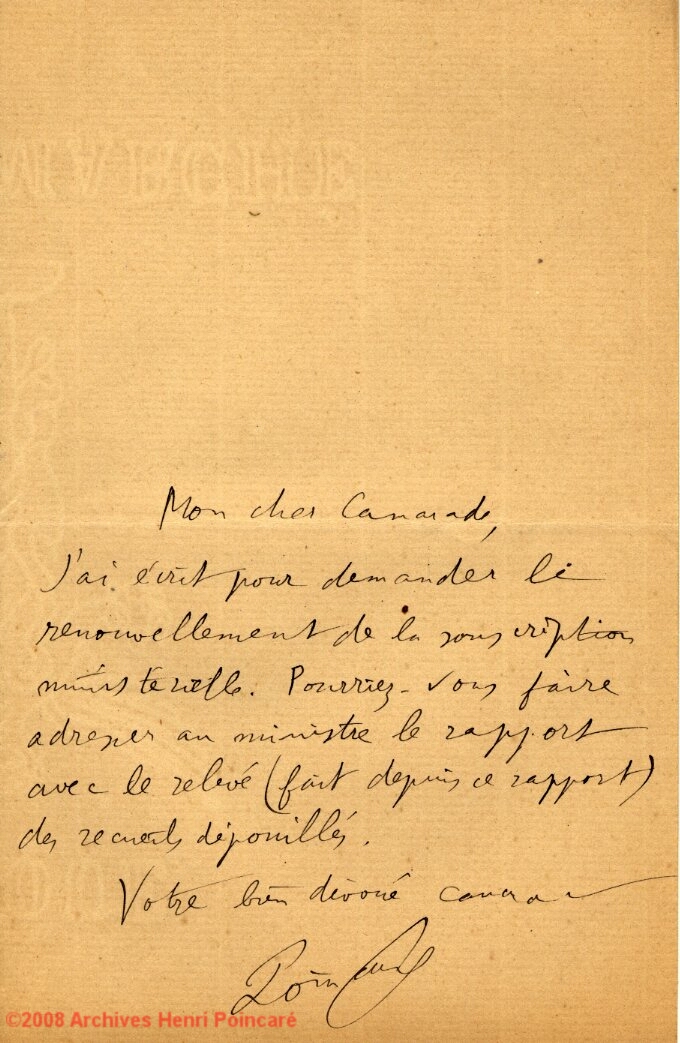 Mon cher Camarade,
J'ai écrit pour demander le
renouvellement de la souscription
ministérielle. Pourriez-vous faire
adresser au ministre le rapport
avec le relevé (fait depuis ce rapport)
des recueils dépouillés.
Votre bien dévoué camarade
Poincaré
©2008 Archives Henri Poincaré